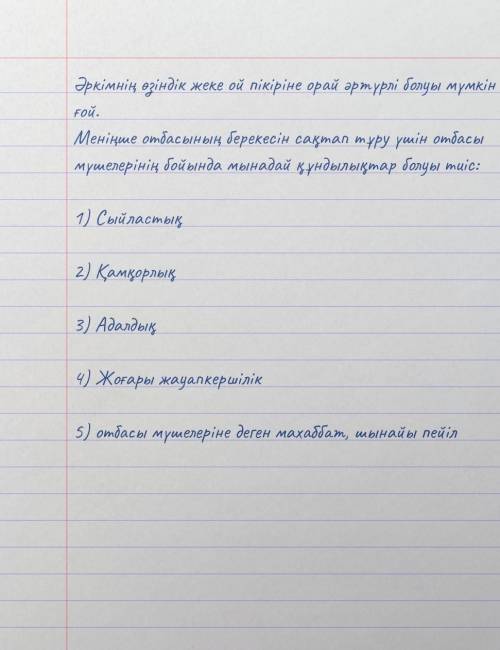 Әркімнің өзіндік жеке ой пікіріне орай әртүрлі болуы мүмкін
ғой.
Меніңше отбасының берекесін сақтап тұру үшін отбасы
мүшелерінің бойында мынадай құндылықтар болуы тиіс:
1) Сыйластық
2) Қамқорлық
3) Адалдық
4) Жоғары жауапкершілік
5) отбасы мүшелеріне деген махаббат, шынайы пейіл